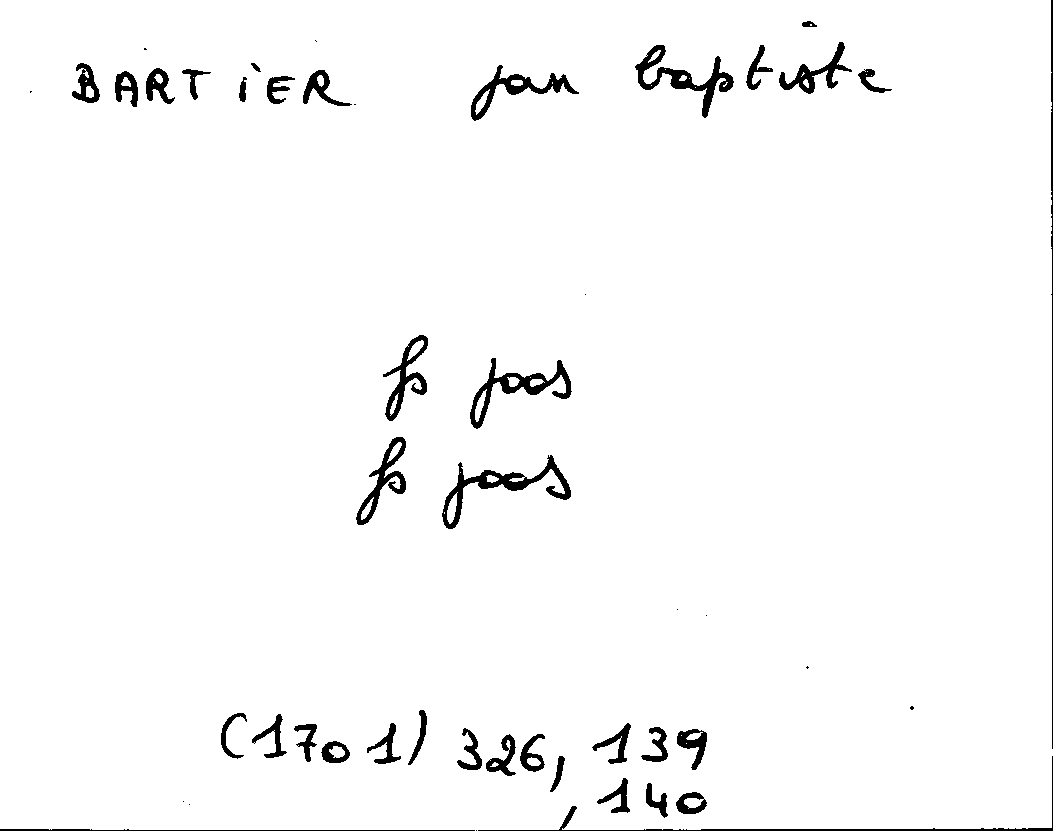 BARTIER jan baptiste
fs joos
fs joos
(1701) 326, 139
, 140